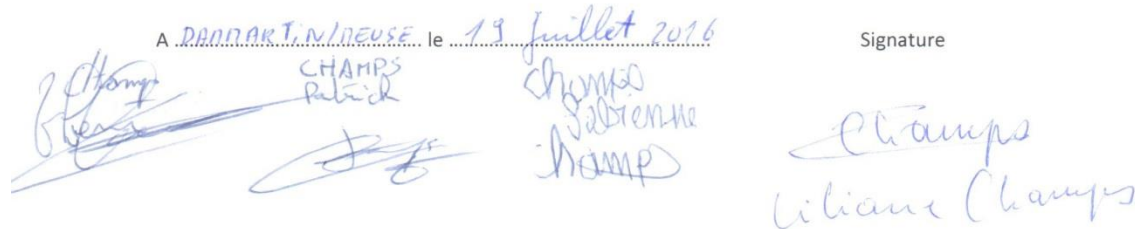 A DAMMARTIN/MEUSE le 19 Juillet 2016
Signature
Champs
CHAMPS
Patrick
Champs
Fabienne
Champs
Champs
Liliane Champs